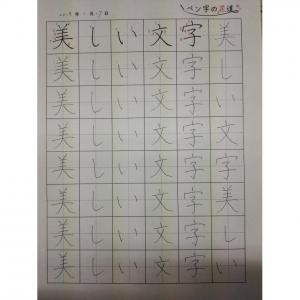 ペン字の正道
美しい文字美
美しい文字し
美しい文字い
美しい文字文
美しい文字字
美しい文字美
美しい文字し
美しい文字い